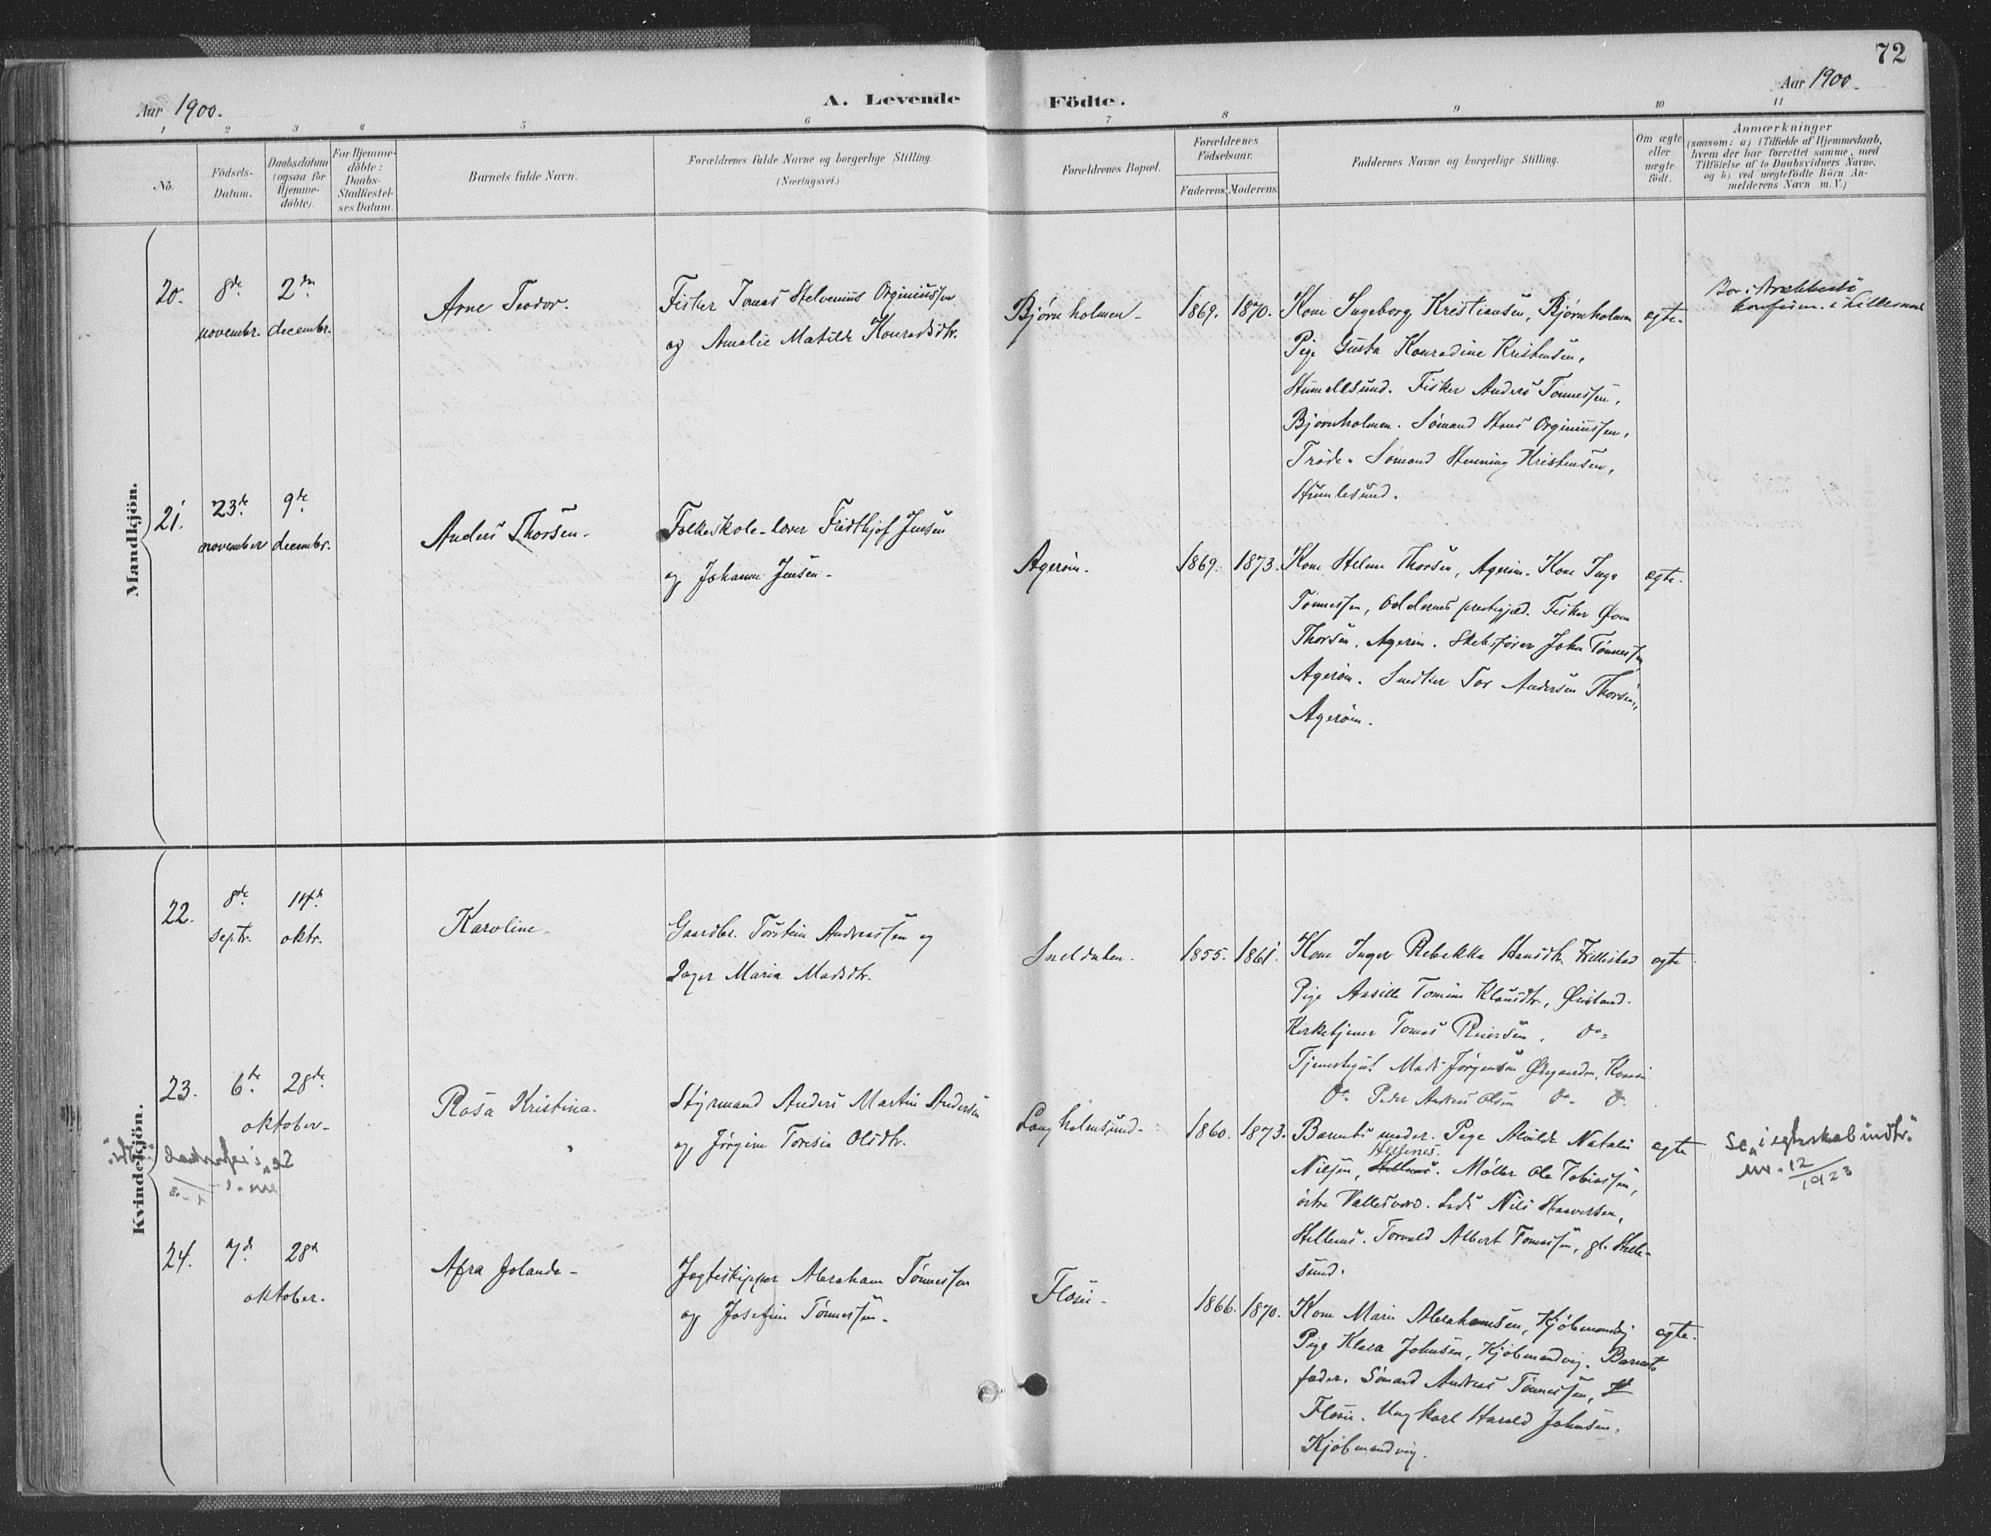 72
Aar 1900.
A. Levende
Födte.
Aar 1900.
1 2 3 4 5 6 7 8 9 10 11
No.
Födsels-
Datum.
Daabsdatum
(ogsaa for
Hjemme-
döbte).
For Hjemme-
döbte:
Daabs-
Stadfæstel-
ses Datum.
Barnets fulde Navn.
Forældrenes fulde Navne og borgerlige Stilling.
(Næringsvei.)
Forældrenes Bopæl.
Forældrenes
Födselsaar.
Faderens. Moderens.
Faddernes Navne og borgerlige Stilling.
Om ægte
eller
uægte
födt.
Anmærkninger
(saasom: a) i Tilfælde af Hjemmedaab,
hvem der har forrettet samme, med
Tilföielse af to Daabsvidners Navne,
og b) ved uægtefödte Börn An-
melderens Navn m. V.)
Mandkjön.
20. 8de 2den
novembr. decembr.
Arne Teodor.
Fisker Tomas Orginiussen
og Amalie Matilde Konradsdtr.
Bjørnholmen -
1869. 1870.
Kone Ingeborg Kristiansen, Bjørnholmen
Pige Gusta Konradine Kristensen,
Humlesund. Fisker Anders Tønnessen,
Bjørnholmen. Sømand Hans Orginiussen,
Trøde. Sømand Henning Kristensen,
Humlesund.
egte.
Bor i
konfirm. i Lillesand
21. 23de 9de
november decembr.
Anders Thorsen -
Folkeskole-lærer Fridthjof Jensen
og Johanne Jensen -
Agerøin -
1869. 1873.
Kone Helene Thorsen, Agerøin. Kone Inga
Tønnessen, Oddernes prestegjæld. Fisker
Thorsen, Agerøin. Skibsfører John Tønnessen
Agerøin. Snedker Tor Andersen Thorsen,
Agerøin.
egte.
Kvindekjön.
22. 8de 14de
septr. oktr.
Karoline -
Gaardbr. Torstein Andreassen og
Inger Maria Madsdtr.
1855. 1861.
Kone Inger Rebekka Hansdtr.
Pige Tomine Klausdtr., Øisland.
Kirketjener Tomas Reiersen. Do -
Tjenestegut Mads Jørgensen
Do Peder Andreas Olsen Do - Do.
egte
23. 6te 28de
oktober -
Rosa Kristina -
Styrmand Anders Martin Andersen
og Jørgine Teresia Olsdtr.
Langholmsund -
1860. 1873.
Barnets moder. Pige Alvilde Natalie
Hellenes
Nilsen, Møller Ole Tobiassen,
østre Vallesværd. Lods Nils Haaversen,
Hellenes. Torvald Albert Tomassen, gl. Helle-
sund.
egte
Se i egteskab indtr.
nr. 12/1923
24. 7de 28de
oktober.
Afra Jolande -
Jagteskipper Abraham Tønnessen
og Josefine Tønnessen -
1866. 1870.
Kone Marie Abrahamsen, Kjøbmandvig
Pige Klara Johnsen, Kjøbmandvig. Barnets
fader. Sømand Andreas Tønnessen,
Ungkarl Harald Johnsen,
Kjøbmandvig.
egte.